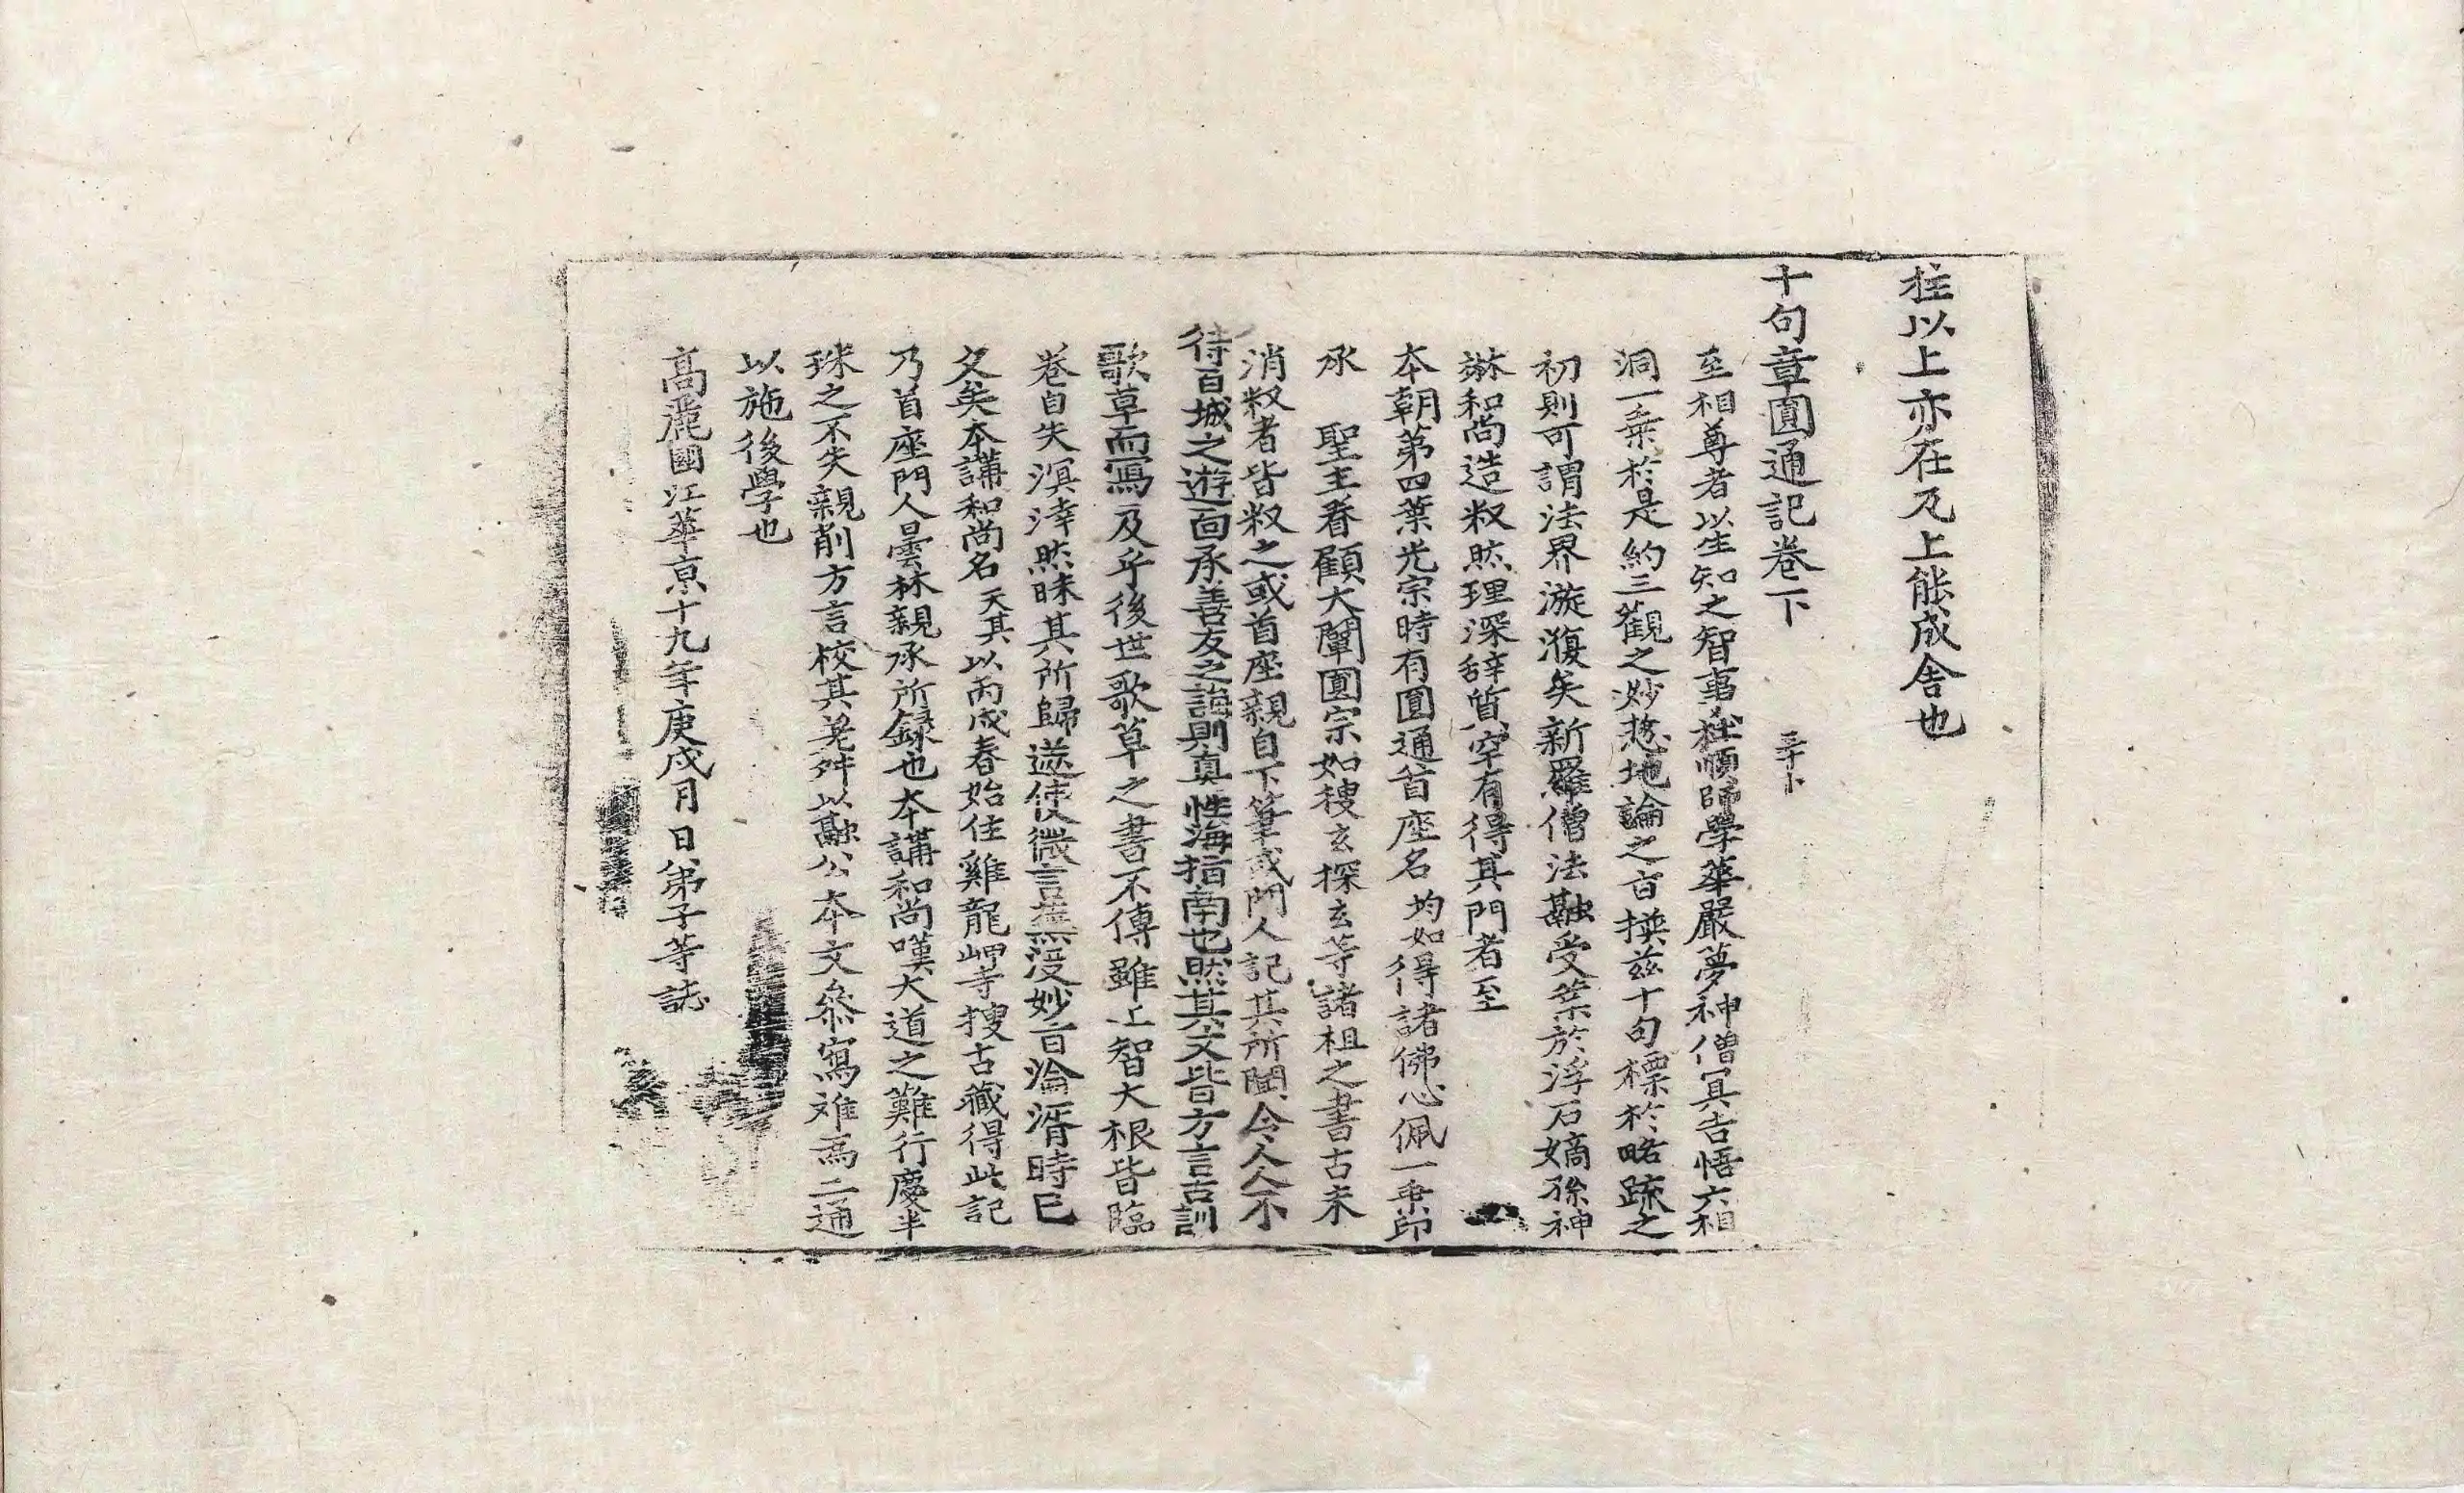 柱以上亦在及上能成舍也
十句章圓通記卷下
至相尊者以生知之智事杜順師學華嚴夢神僧冥告悟六相
洞一乗於是約三觀之妙惣地論之旨撰兹十句標於略䟽之
初則可謂法界漩澓矣新羅僧法融受業於浮石嫡孫神
琳和尚造釈然理深辞質罕有得其門者至
本朝第四葉光宗時有圓通首座名均如得諸佛心佩一乗印
承　聖主眷顧大闡圓宗如搜玄探玄等諸祖之書古未
消釈者皆釈之或首座親自下筆或門人記其所聞令人人不
待百城之遊面承善友之誨則真性海指南也然其文皆方言古訓
歌草而寫及乎後世歌草之書不傳雖上智大根皆臨
卷自失溟涬然昧其所歸遂使微言蕪没妙旨淪湑時已
久矣本講和尚名天其以丙戌春始住雞龍岬寺搜古藏得此記
乃首座門人曇林親承所録也本講和尚嘆大道之難行慶半
珠之不失親削方言校其差舛以融公本文叅寫难爲二通
以施後學也
高麗國江華京十九年庚戌月日弟子等誌